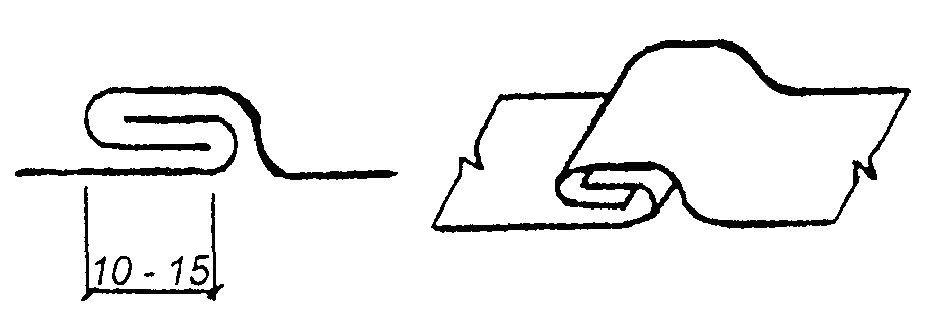 10 - 15